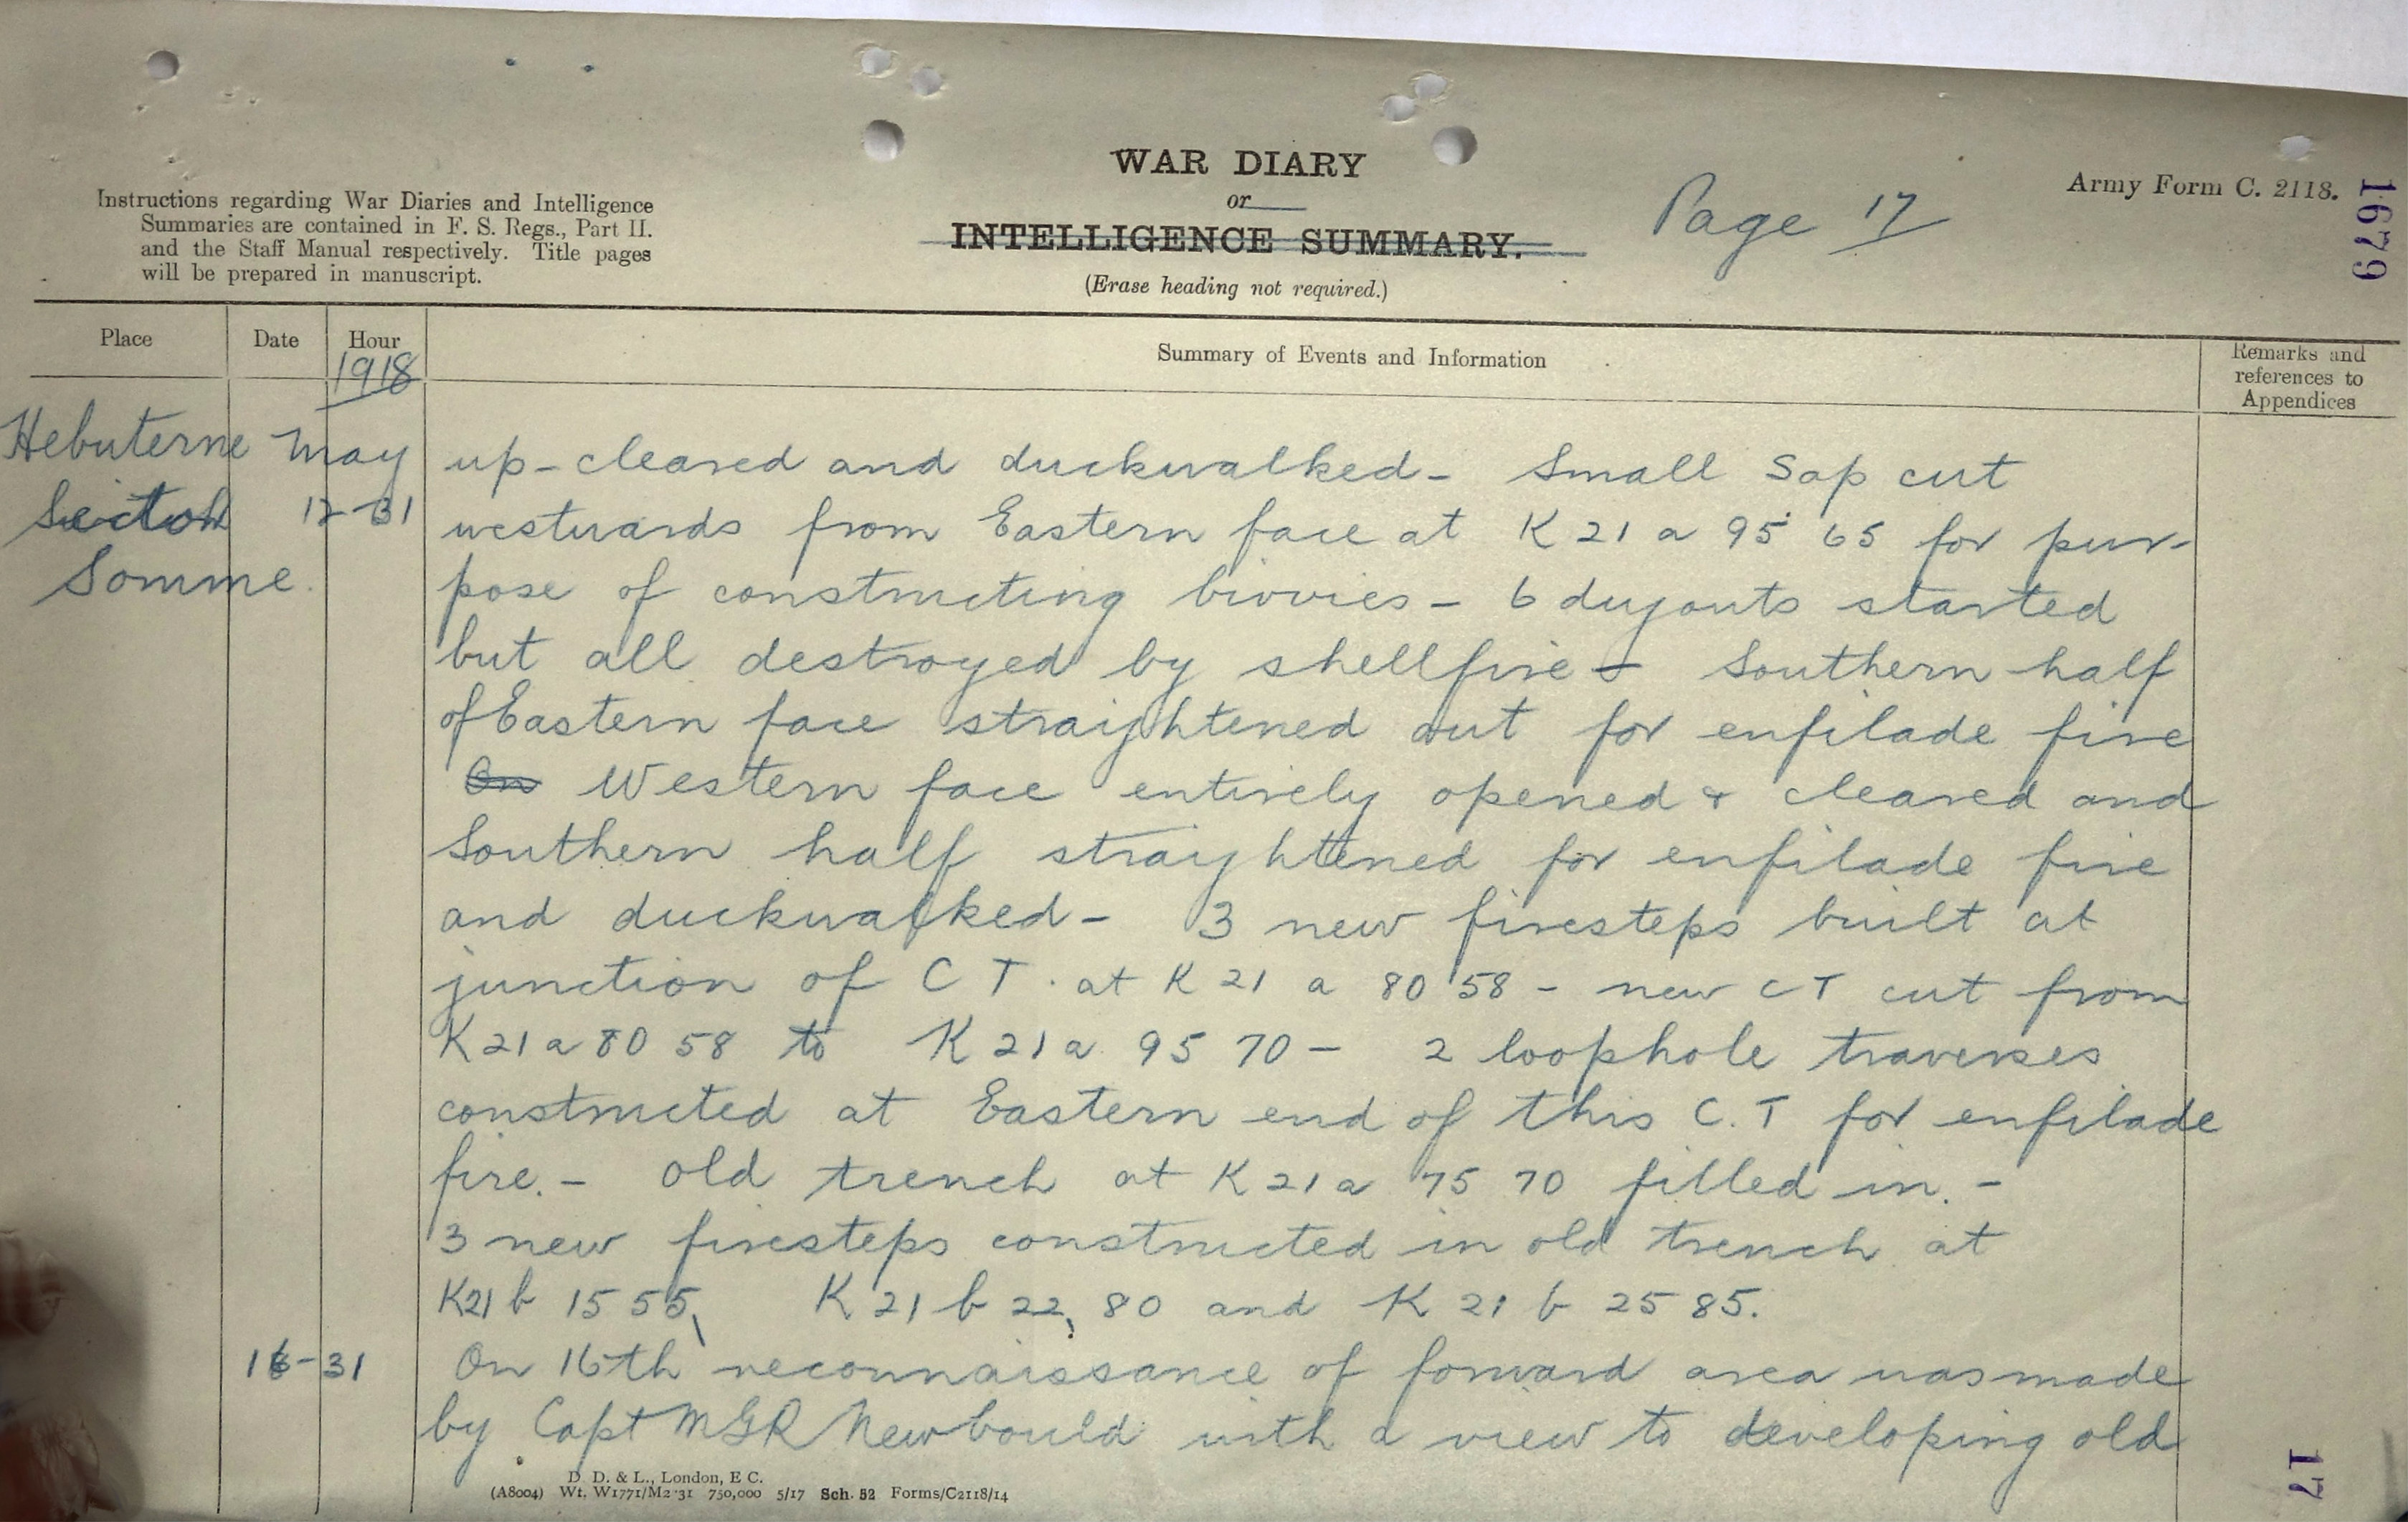 WAR DIARY
or
INTELLIGENCE SUMMARY.
(Erase heading not required.)
Instructions regarding War Diaries and Intelligence
Summaries are contained in F. S. Regs., Part II.
and the Staff Manual respectively. Title pages
will be prepared in manuscript.
Page 17
Army Form C. 2118.
1679
Place
Date
Hour
1918
Summary of Events and Information
Remarks and
references to
Appendices
Hebuterne May
Sector 12-31
Somme.
up - cleared and duckwalked - Small Sap cut
westwards from Eastern face at K 21 a 95 65 for pur-
pose of constructing bivvies - 6 dugouts started
but all destroyed by shellfire - Southern half
of Eastern face straightened out for enfilade fire
On Western face entirely opened & cleared and
Southern half straightened for enfilade fire
and duckwalked - 3 new firesteps built at
junction of C T. at K 21 a 80 58 - new CT cut from
K 21 a 80 58 to K 21 a 95 70 - 2 loophole traverses
constructed at Eastern end of this C.T for enfilade
fire. - Old trench at K 21 a 75 70 filled in. -
3 new firesteps constructed in old trench at
K21 b 15 55, K 21 b 22, 80 and K 21 b 25 85.
16-31 On 16th reconnaissance of forward area was made
by Capt MGR Newbould with a view to developing old
D. D. & L., London, E C.
(A8004) Wt. W1771/M2·31 750,000 5/17 Sch. 52 Forms/C2118/14
17